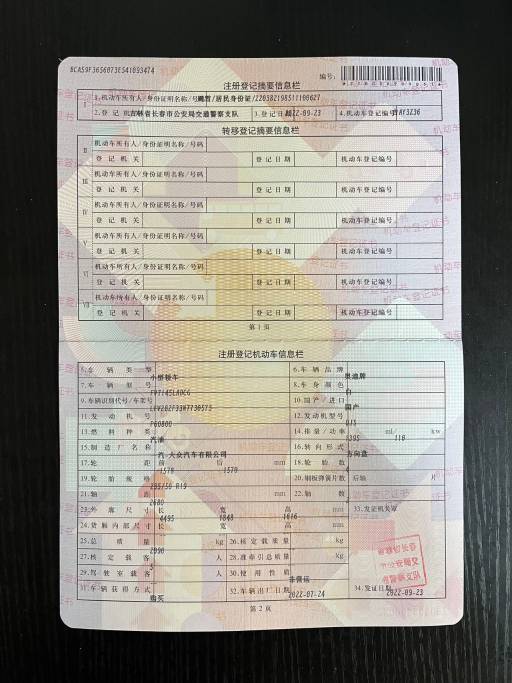 BCAS9F3656073E541093474
编号:
注册登记摘要信息栏
I 1.机动车所有人/身份证明名称/号码 /居民身份证/220382198511100627
2.登记机关 吉林省长春市公安局交通警察支队 3.登记日期 2022-09-23 4.机动车登记编号
转移登记摘要信息栏
II 机动车所有人/身份证明名称/号码
登记机关 登记日期 机动车登记编号
III 机动车所有人/身份证明名称/号码
登记机关 登记日期 机动车登记编号
IV 机动车所有人/身份证明名称/号码
登记机关 登记日期 机动车登记编号
V 机动车所有人/身份证明名称/号码
登记机关 登记日期 机动车登记编号
VI 机动车所有人/身份证明名称/号码
登记机关 登记日期 机动车登记编号
VII 机动车所有人/身份证明名称/号码
登记机关 登记日期 机动车登记编号
第1页
注册登记机动车信息栏
5.车辆类型 小型轿车 6.车辆品牌 奥迪牌
7.车辆型号 8.车身颜色 白
9.车辆识别代号/车架号 10.国产/进口 国产
11.发动机号 F60800 12.发动机型号
13.燃料种类 汽油 14.排量/功率 1395 ml/ 110 kw
15.制造厂名称 一汽-大众汽车有限公司 16.转向形式 方向盘
17.轮距 前 1578 后 1570 mm 18.轮胎数
19.轮胎规格 235/50 R19 20.钢板弹簧片数 后轴 片
21.轴距 2680 mm 22.轴数
23.外廓尺寸 长 4495 宽 1848 高 1616 mm 33.发证机关章
24.货厢内部尺寸 长 宽 高 mm
25.总质量 2090 kg 26.核定载质量 kg
27.核定载客 5 人 28.准牵引总质量 kg
29.驾驶室载客 人 30.使用性质 非营运
31.车辆获得方式 购买 32.车辆出厂日期 2022-07-24 34.发证日期 2022-09-23
第2页